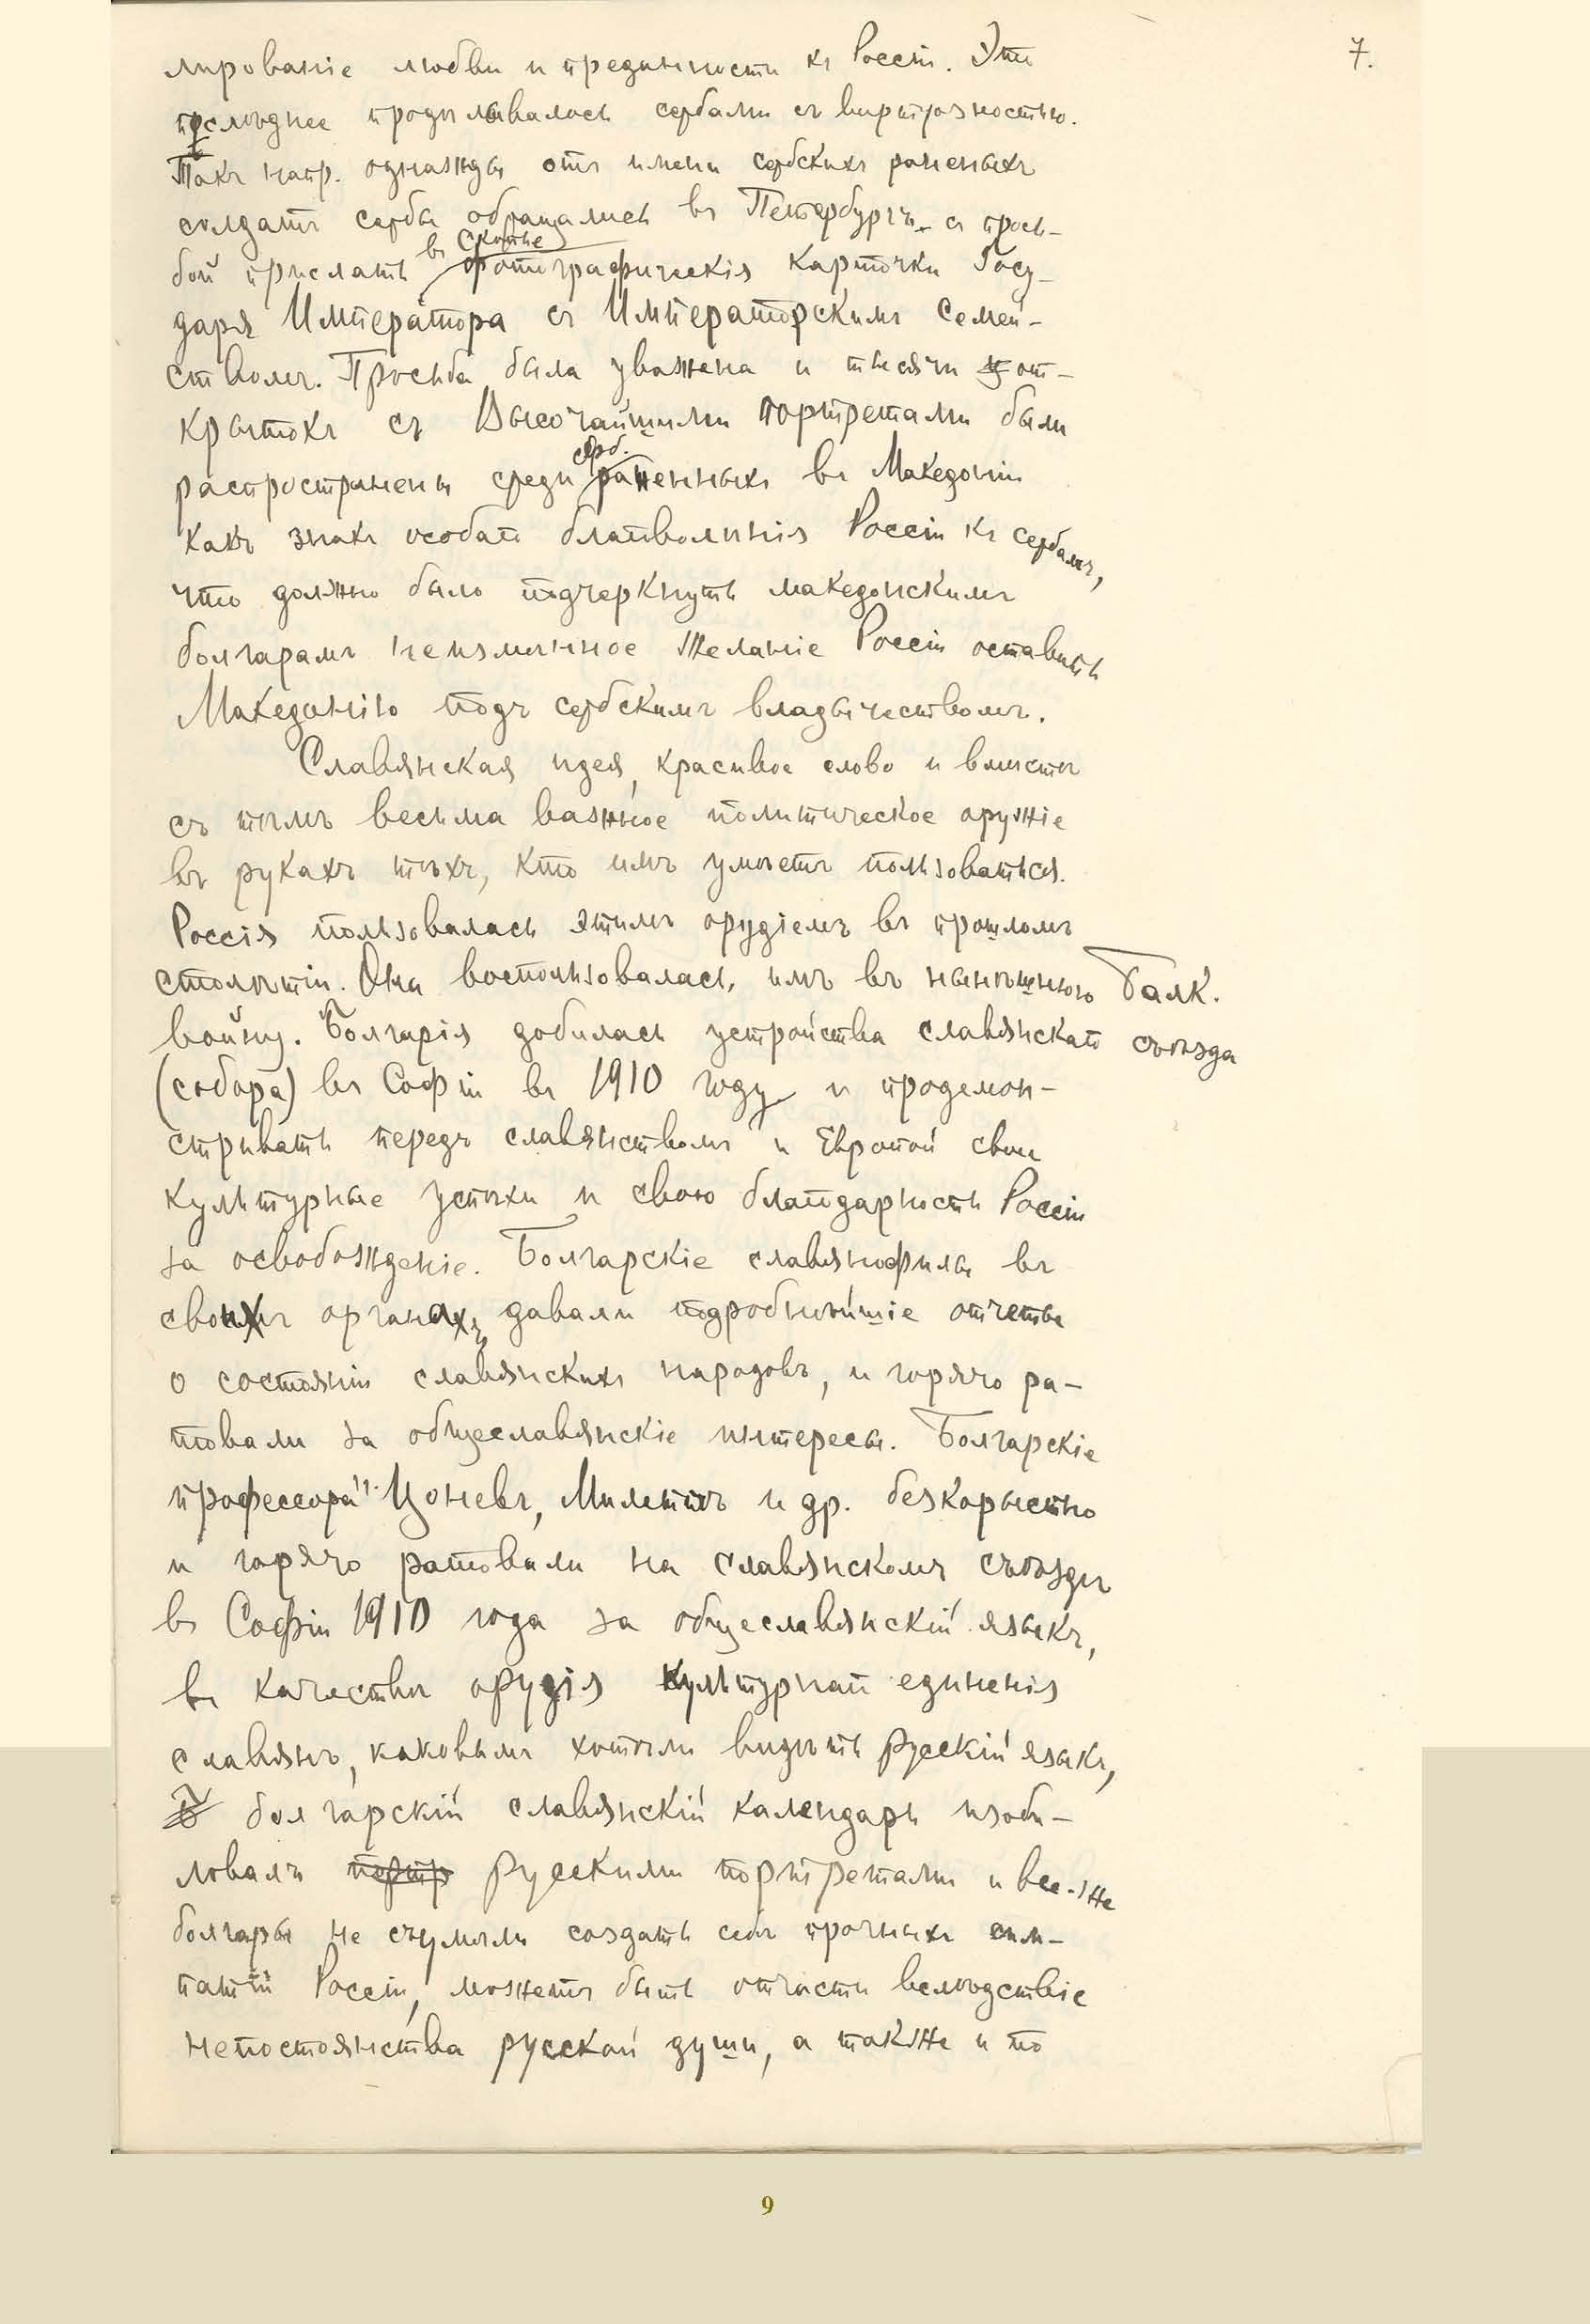 7.
лированіе любви и преданности къ Россіи. Эти
послѣднее продѣлывалось сербами съ виртуозностью.
Такъ напр. однажды отъ имени сербскихъ раненыхъ
солдатъ сербы обращались въ Петербургъ съ прось-
бой прислать въ Скопіе фотографическія карточки Госу-
даря Императора съ Императорскимъ Семей-
ствомъ. Просьба была уважена и тысячи от-
крытокъ съ Высочайшими портретами были
распространены среди серб. раненныхъ въ Македоніи
какъ знакъ особаго благоволенія Россіи къ сербамъ,
что должно было подчеркнуть македонскимъ
болгарамъ неизмѣнное желаніе Россіи оставить
Македонію подъ сербскимъ владычествомъ.
Славянская идея, красивое слово и вмѣстѣ
съ тѣмъ весьма важное политическое оружіе
въ рукахъ тѣхъ, кто имъ умѣетъ пользоваться.
Россія пользовалась этимъ орудіемъ въ прошломъ
столѣтіи. Она воспользовалась имъ въ нынѣшнюю Балк.
войну. Болгарія добилась устройства славянскаго съѣзда
(собора) въ Софіи въ 1910 году и продемон-
стрировать передъ славянствомъ и Европой свои
культурные успѣхи и свою благодарность Россіи
за освобожденіе. Болгарскіе славянофилы въ
своихъ органахъ давали подробнѣйшіе отчеты
о состояніи славянскихъ народовъ, и горячо ра-
товали за общеславянскіе интересы. Болгарскіе
профессора Цоневъ, Милетичъ и др. безкорыстно
и горячо ратовали на славянскомъ съѣздѣ
въ Софіи 1910 года за общеславянскій языкъ,
въ качествѣ орудія культурнаго единенія
славянъ, каковымъ хотѣли видѣть русскій языкъ,
болгарскій славянскій календарь изоби-
ловалъ русскими портретами и все-же
болгары не съумѣли создать себѣ прочныхъ сим-
патій Россіи, можетъ быть отчасти вслѣдствіе
непостоянства русской души, а также и по
9